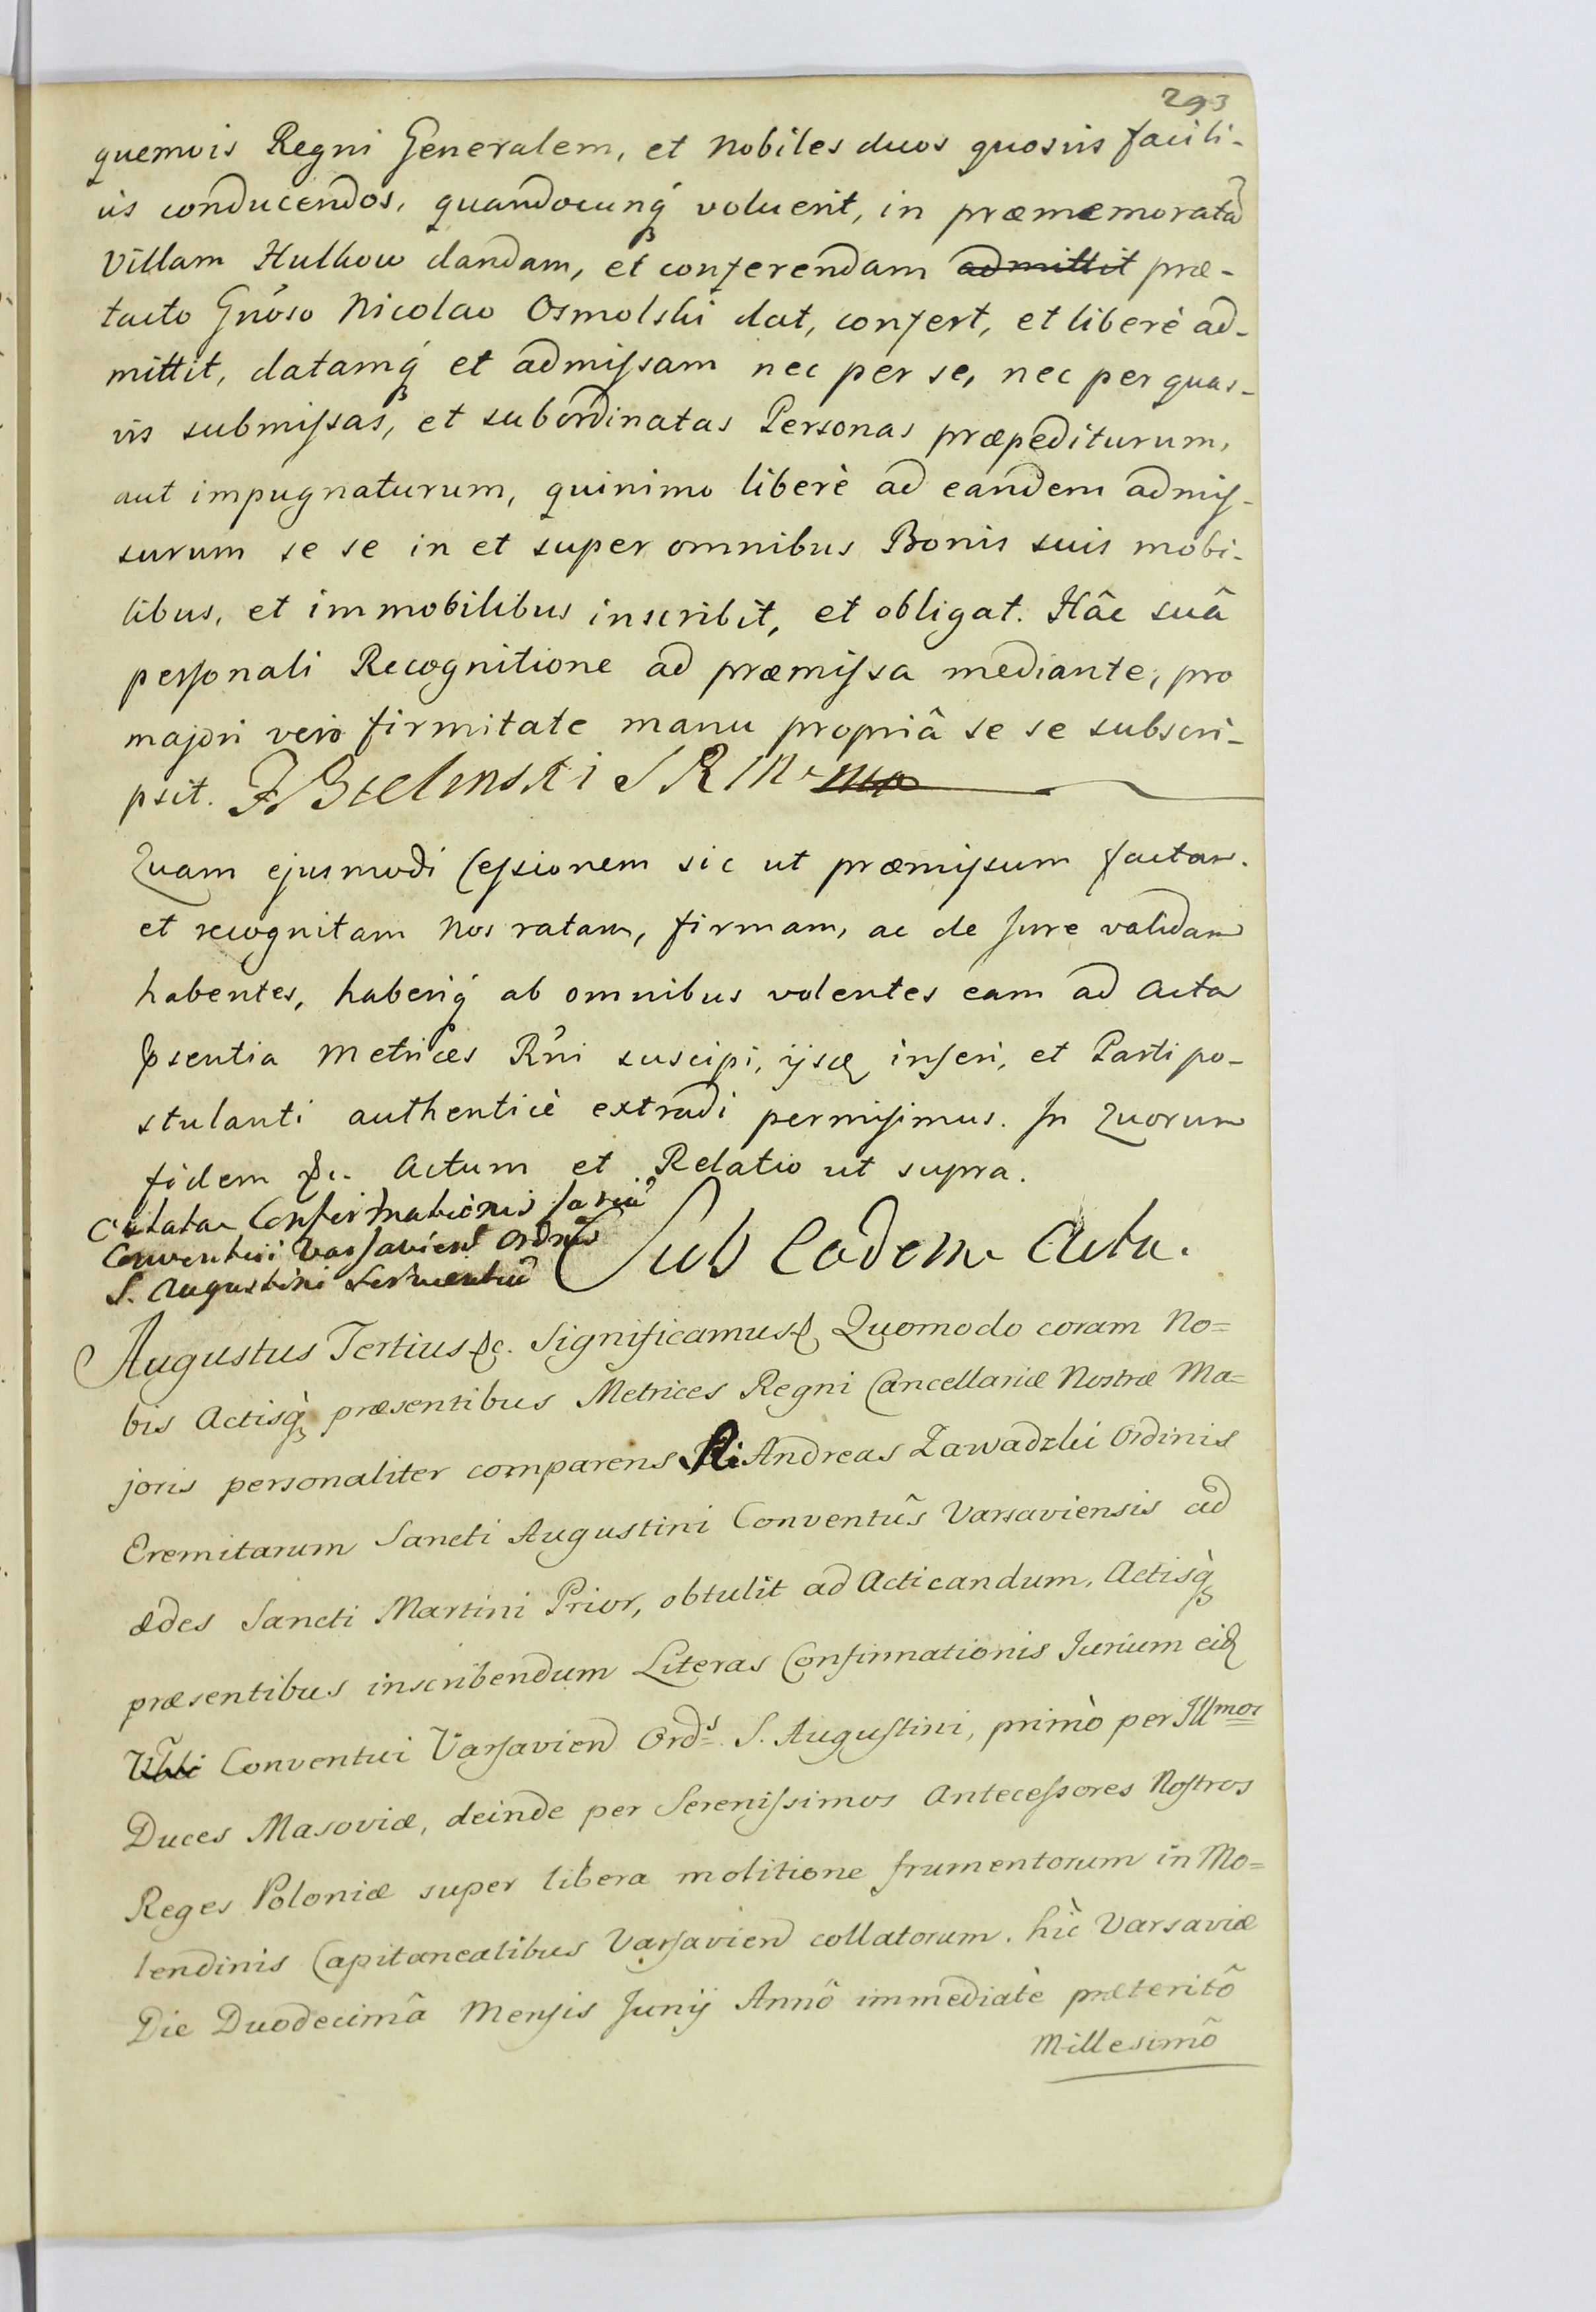 293
quemvis Regni Generalem, et Nobiles duos quosvis facili-
ùs conducendos, quandocunq́ voluerit, in præmemoratã
Villam Hulkow dandam, et conferendam admittit præ-
tacto Gnõso Nicolao Osmolski dat, confert, et liberè ad-
mittit, datamq́ et admissam nec per se, nec per quas-
vis submissas, et subordinatas Personas præpediturum,
aut impugnaturum, quinimo liberè ad eandem admis-
surum se se in et super omnibus Bonis suis mobi-
libus, et immobilibus inscribit, et obligat. Hâc suâ
personali Recognitione ad præmissa mediante, pro
majori verò firmitate manu propriâ se se subscri-
psit. F. Bielinski
Quam ejusmodi Cessionem sic ut præmissum factam
et recognitam Nos ratam, firmam, ac de Jure validam
habentes, haberiq́ ab omnibus volentes eam ad Acta
psentia Metrices Rñi suscipi, ijsq inseri, et Parti po-
stulanti authenticè extradi permisimus. In Quorum
fidem &c. Actum et Relatio ut supra.
Oblata Confirmationis Juriũ
Conventui Varsavien Ordñis
S. Augustini Servientiũ
Sub Eadem Acta.
Augustus Tertius &c. Significamus& Quomodo coram No=
bis Actisq̀ præsentibus Metrices Regni Cancellariæ Nostræ Ma=
joris personaliter comparens Ri Andreas Zawadzki Ordinis
Eremitarum Sancti Augustini Conventûs Varsaviensis ad
ædes Sancti Martini Prior, obtulit ad Acticandum, Actisq̀
præsentibus inscribendum Literas Confirmationis Jurium eid
Conventui Varsavien Ord.s S. Augustini, primò per Illmos
Duces Masoviæ, deinde per Serenissimos Antecessores Nostros
Reges Poloniæ super libera molitione frumentorum in Mo=
lendinis Capitanealibus Varsavien collatorum. hìc Varsaviæ
Die Duodecimâ Mensis Junij Annô immediatè præteritô
Millesimô